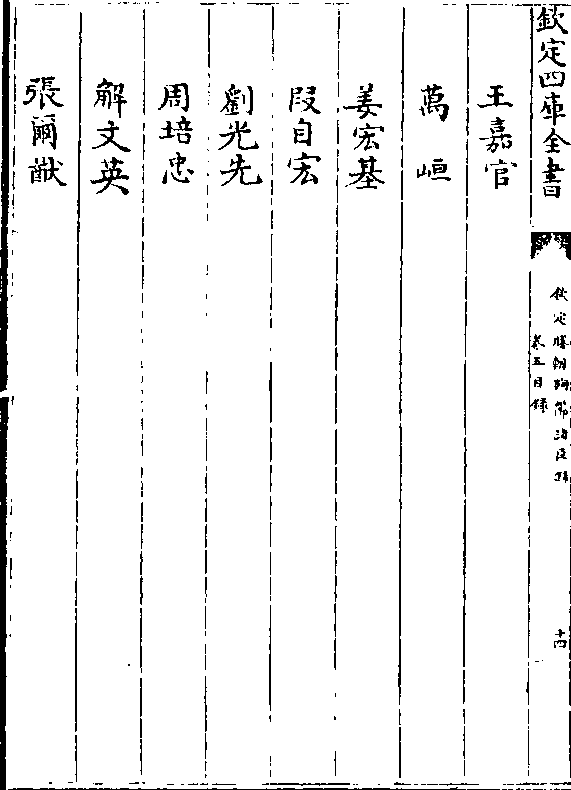 欽定四庫全書
欽定勝朝殉節諸臣録
卷五目録
十四
王嘉官
萬峘
姜宏基
段自宏
劉光先
周培忠
解文英
張爾猷